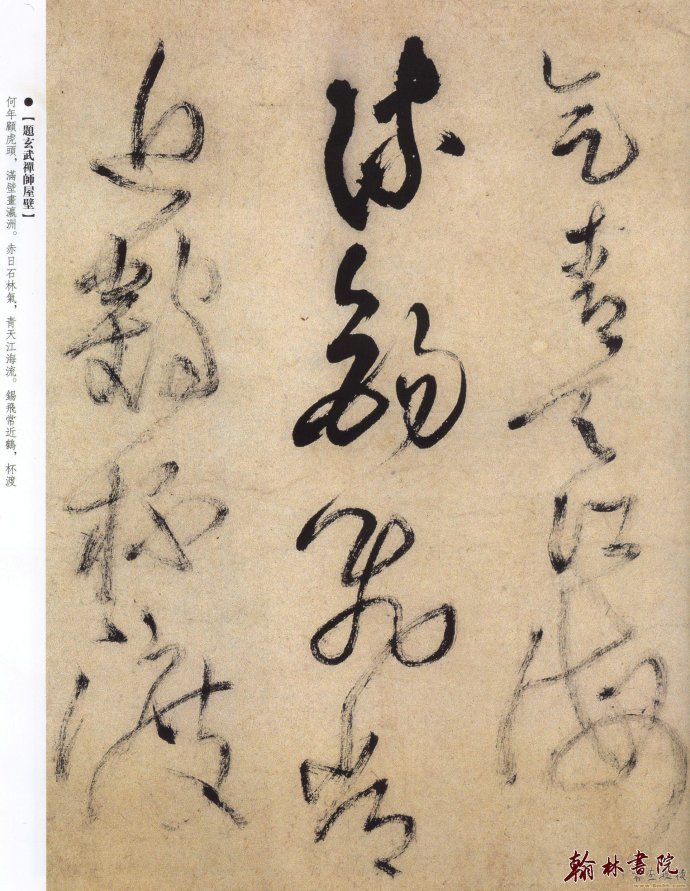 氣青天江海
流錫飛常
近鶴杯渡
●【題玄武禪師屋壁】
何年顧虎頭，滿壁畫瀛洲。赤日石林氣，青天江海流。錫飛常近鶴，杯渡
翰林書院